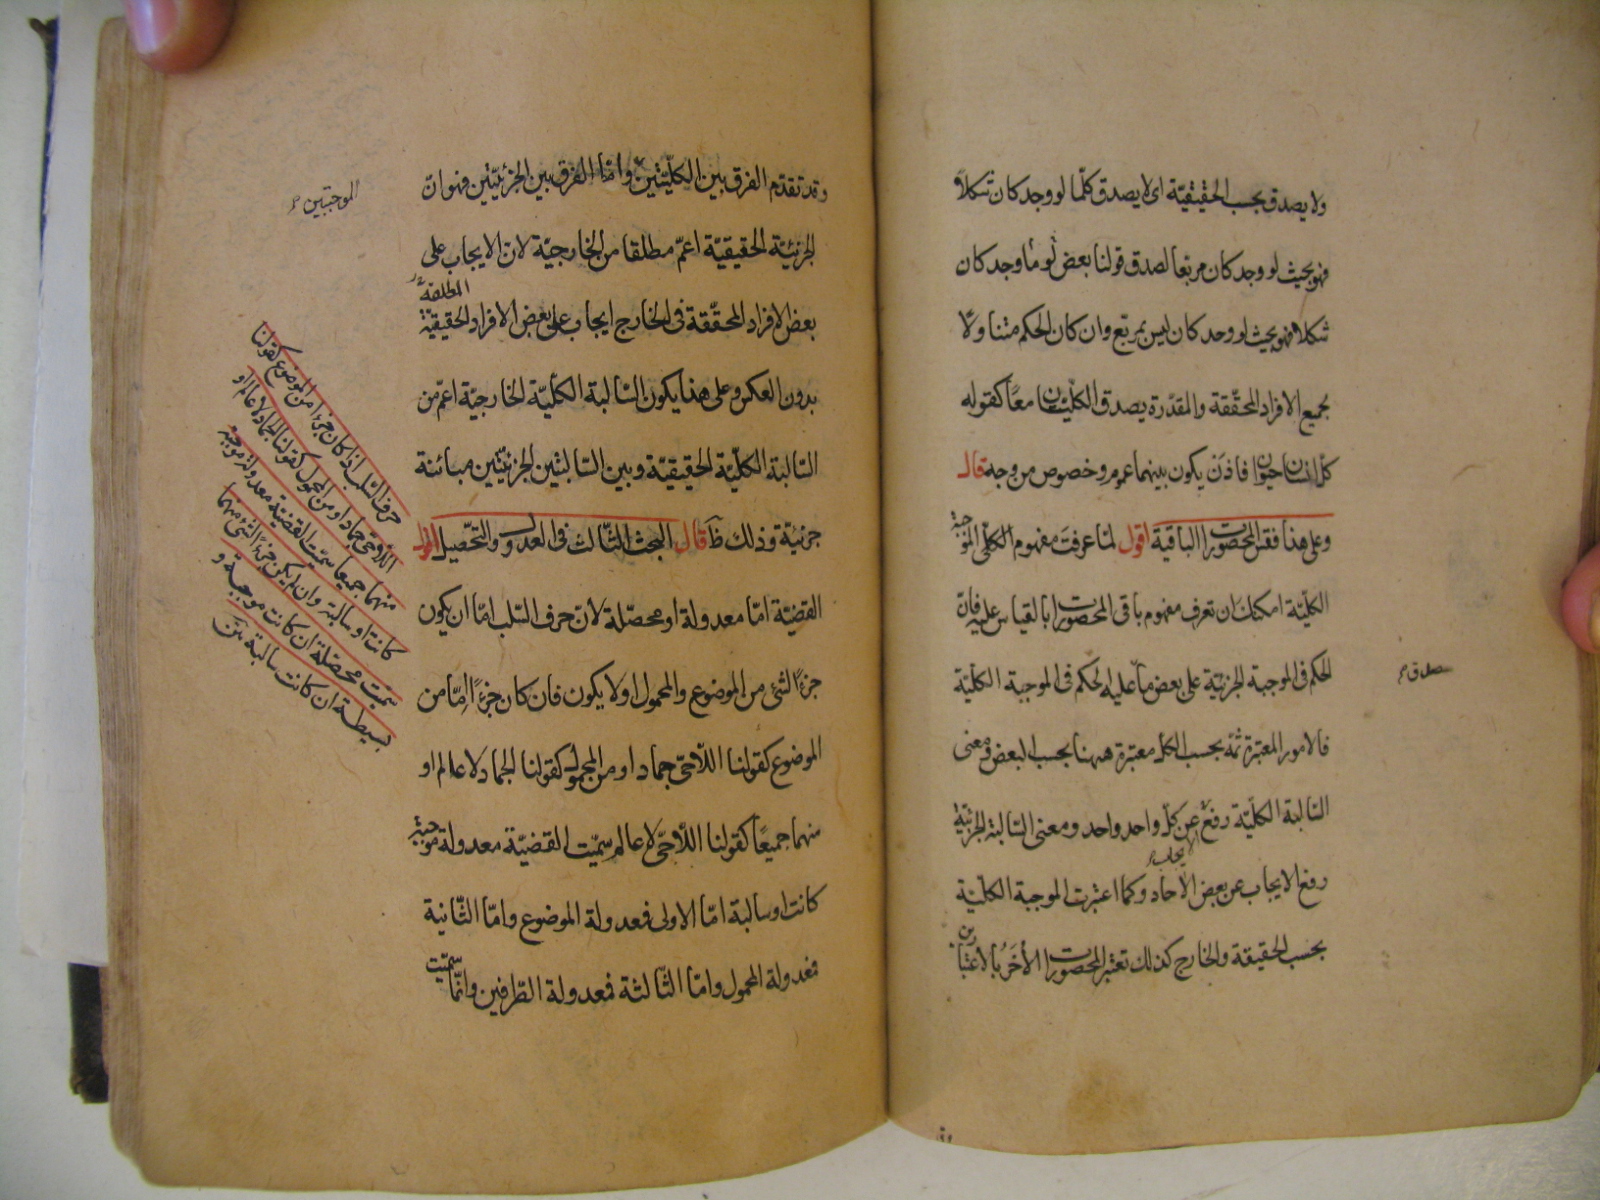 ولا يصدق بحسب الحقيقيّة اى لا يصدق كلّما لو وجد كان شكلاً
فهو بحيث لو وجد كان مربعا لصدق قولنا بعض لو ما وجد كان
شكلا فهو بحيث لو وجد كان ليس بمربع وان كان الحكم متنا ولًا
لجميع الافراد المحقّقة والمقدّرة يصدق الكليّتان معًا كقوله
كلّ انسان حيوان فاذَن يكون بينهما عموم وخصوص من وجه قال
وعلى هذا فقس المحصورات الباقية اقول لمّا عرفتَ مفهوم الكلّى الموجبة
الكليّة امكنك ان تعرف مفهوم باقى المحصورات بالقياس عليه فانّ
الحكم فى الموجبة الجزئيّة على بعض ما عليه الحكم فى الموجبة الكليّة
صدق م
فالامور المعتبرة ثمّه بحسب الكل معتبرة ههنا بحسب البعض ومعنى
السّالبة الكليّة رفع عن كلّ واحد واحد ومعنى السّالبة الجزئيّة
الايجاب
رفع الايجاب عن بعض الآحاد وكما اعتبرت الموجبة الكليّة
بحسب الحقيقة والخارج كذلك تعتبر المحصورات الأُخَرُ بالاعتبارين
وقد تقدّم الفرق بين الكلّيّتين وامّا الفرق بين الجزئيّتين فهو انّ
الموجبتين م
الجزئيّة الحقيقيّة اعمّ مطلقا من الخارجيّة لانّ الايجاب على
المطلقة
بعض الافراد المحقّقة فى الخارج ايجاب على بعض الافراد الحقيقيّة
بدون العكس وعلى هذا يكون السّالبة الكليّة الخارجيّة اعمّ من
السّالبة الكليّة الحقيقيّة وبين السّالبتين الجزئيّتين مباينة
جزئيّة وذلك ظَ قال البحث الثّالث فى العدول والتحّصيل اقول
القضيّة امّا معدولة او محصّلة لانّ حرف السّلب امّا ان يكون
جزءًا لشئ من الموضوع والمحمول او لا يكون فان كان جزءًا امّا من
الموضوع كقولنا اللّاحىّ جماد او من المحمول كقولنا الجماد لا عالم او
منهما جميعًا كقولنا اللّاحىّ لا عالم سمّيت القضيّة معدولة موجبة
كانت او سالبة امّا الاولى فمعدولة الموضوع وامّا الثّانية
فمعدولة المحمول وامّا الثّالثة فمعدولة الطّرفين وانّما سمّيت
حرف السّلب اذا كان جزءا من الموضوع كقولنا
اللّاحىّ جماد او من المحمول كقولنا الجماد لا عالم او
منهما جميعا سمّيت القضيّة معدولة موجبة
كانت او سالبة وان لم يكن جزءًا لشئ منهما
سمّيت محصّلة ان كانت موجبة و
بسيطة ان كانت سالبة متن